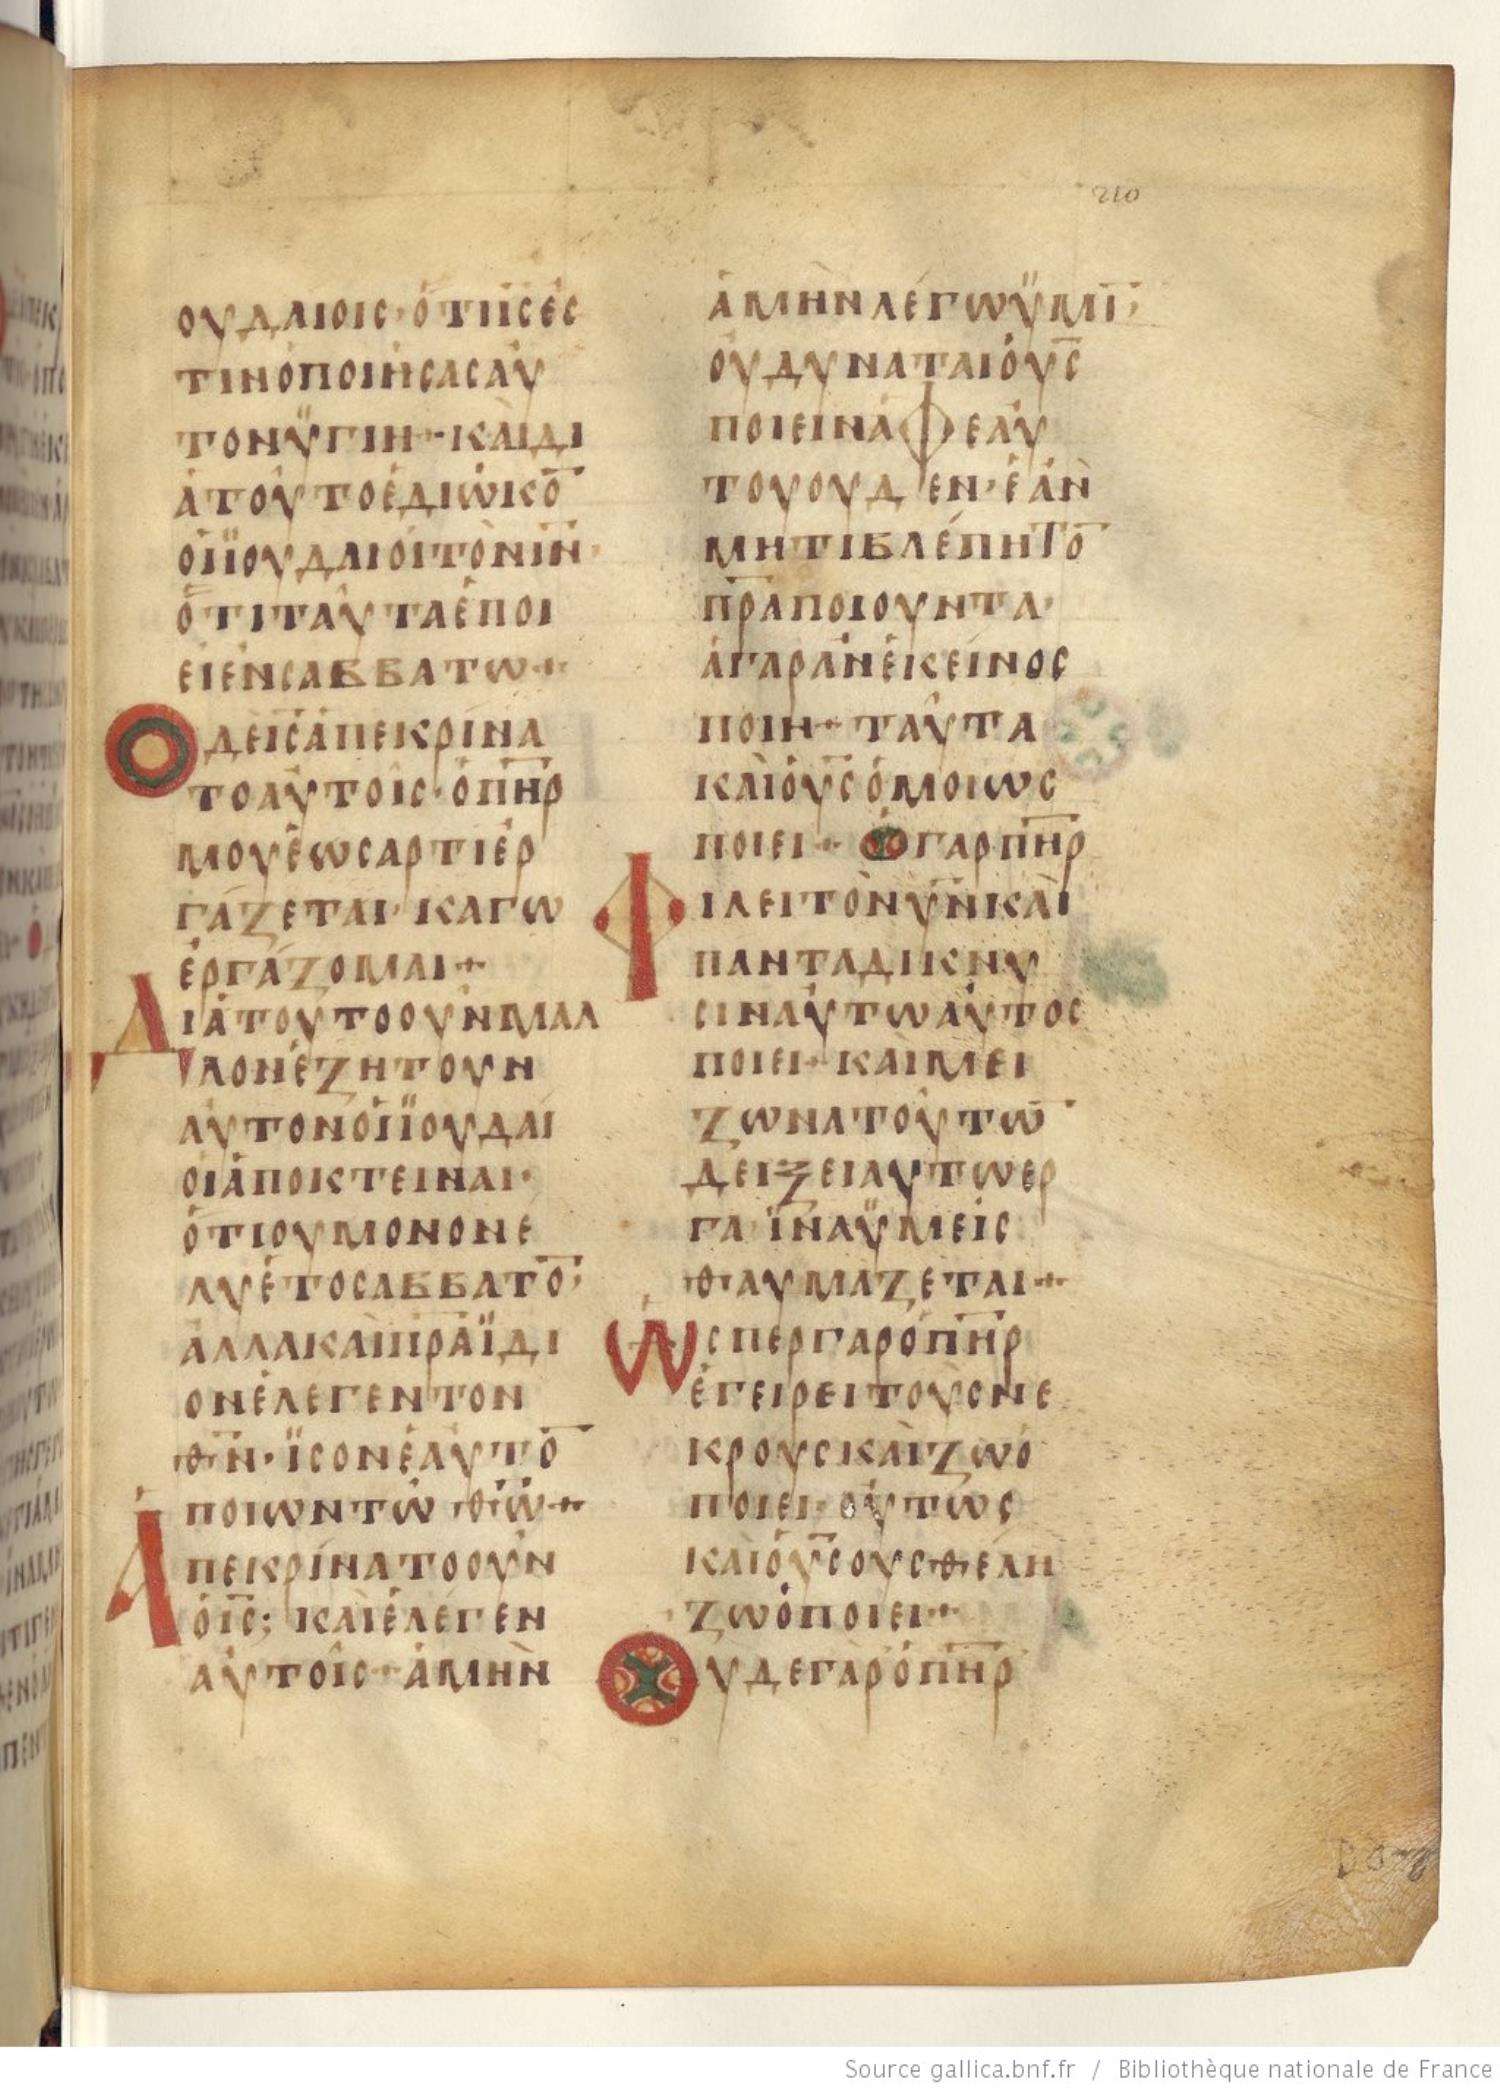 210
ΟΥΔΑΙΟΙΣ·ὉΤΙΙ̅Σ̅ΕΣ
ΤΙΝΟΠΟΙΗΣΑΣΑΥ
ΤΟΝΫΓΙΗ·ΚΑΙΔΙ
ΑΤΟΥΤΟΕΔΙΩΚΟ̅
ΟΙΪΟΥΔΑΙΟΙΤΟΝΙ̅Ν̅·
ὉΤΙΤΑΥΤΑΕΠΟΙ
ΕΙΕΝΣΑΒΒΑΤΩ+
ΟΔΕΙ̅Σ̅ΑΠΕΚΡΙΝΑ
ΤΟΑΥΤΟΙΣ·ΟΠ̅Η̅Ρ̅
ΜΟΥΕΩΣΑΡΤΙΕΡ
ΓΑΖΕΤΑΙ·ΚΑΓΩ
ΕΡΓΑΖΟΜΑΙ+
ΔΙΑΤΟΥΤΟΟΥΝΜΑΛ
ΛΟΝΕΖΗΤΟΥΝ
ΑΥΤΟΝΟΙΪΟΥΔΑΙ
ΟΙΑΠΟΚΤΕΙΝΑΙ·
ὉΤΙΟΥΜΟΝΟΝΕ
ΛΥΕΤΟΣΑΒΒΑΤΟ̅·
ΑΛΛΑΚΑΙΠ̅Ρ̅Α̅ΪΔΙ
ΟΝΕΛΕΓΕΝΤΟΝ
Θ̅Ν̅·ΪΣΟΝΕΑΥΤΟ̅
ΠΟΙΩΝΤΩΘ̅Ω̅+
ΑΠΕΚΡΙΝΑΤΟΟΥΝ
ΟΙ̅Σ̅; ΚΑΙΕΛΕΓΕΝ
ΑΥΤΟΙΣ·ΑΜΗΝ
ΑΜΗΝΛΕΓΩΫΜΙ̅·
ΟΥΔΥΝΑΤΑΙΟΥ̅Σ̅
ΠΟΙΕΙΝΑΦΕΑΥ
ΤΟΥΟΥΔΕΝ·ΕΑΝ
ΜΗΤΙΒΛΕΠΗΤΟ̅
Π̅Ρ̅Α̅ΠΟΙΟΥΝΤΑ·
ΑΓΑΡΑΝΕΚΕΙΝΟΣ
ΠΟΙΗ+ΤΑΥΤΑ
ΚΑΙΟΥ̅Σ̅ΟΜΟΙΩΣ
ΠΟΙΕΙ+ΟΓΑΡΠ̅Η̅Ρ̅
ΦΙΛΕΙΤΟΝΥ̅Ν̅ΚΑΙ
ΠΑΝΤΑΔΙΚΝΥ
ΣΙΝΑΥΤΩΑΥΤΟΣ
ΠΟΙΕΙ+ΚΑΙΜΕΙ
ΖΩΝΑΤΟΥΤΩ̅
ΔΕΙΞΕΙΑΥΤΩΕΡ
ΓΑ·ΪΝΑΫΜΕΙΣ
ΘΑΥΜΑΖΕΤΑΙ+
ΩΣΠΕΡΓΑΡΟΠ̅Η̅Ρ̅
ΕΓΕΙΡΕΙΤΟΥΣΝΕ
ΚΡΟΥΣΚΑΙΖΩΟ
ΠΟΙΕΙ·ΟΥΤΩΣ
ΚΑΙΟΥ̅Σ̅ΟΥΣΘΕΛΗ
ΖΩΟΠΟΙΕΙ+
ΟΥΔΕΓΑΡΟΠ̅Η̅Ρ̅
Source gallica.bnf.fr / Bibliothèque nationale de France